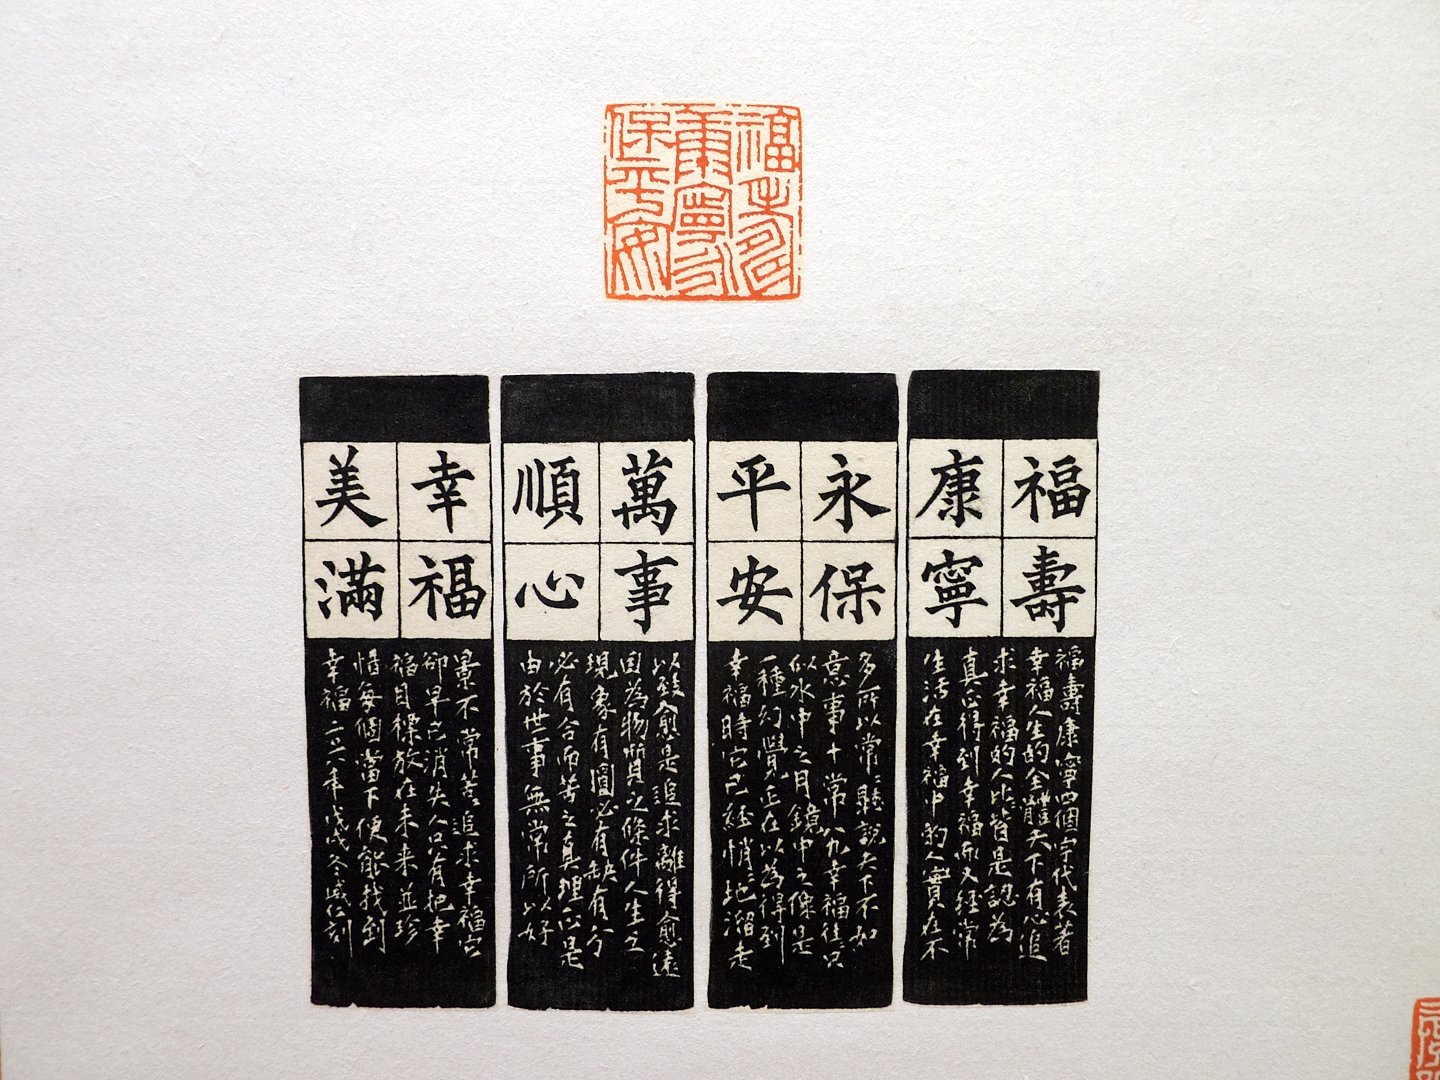 福壽
康寧
永保
平安
萬事
順心
幸福
美滿
福壽康寧四個字代表著
幸福人生的全體天下有心追
求幸福的人比皆是認為
真心得到幸福而又經常
生活在幸福中的人實在不
多所以常聽說天下不如
意事十常八九幸福往只
似水中之月鏡中之像是
一種幻覺正在以為得到
幸福時它已經悄地溜走
以致愈是追求離得愈遠
因為物質之條件人生之
現象有圓必有缺有分
必有合而苦之真理正是
由於世事無常所以好
景不常苦追求幸福它
卻早已消失人只有把幸
福目標放在未來並珍
惜每個當下便能找到
幸福二〇一八年戊戌冬盛仁刻